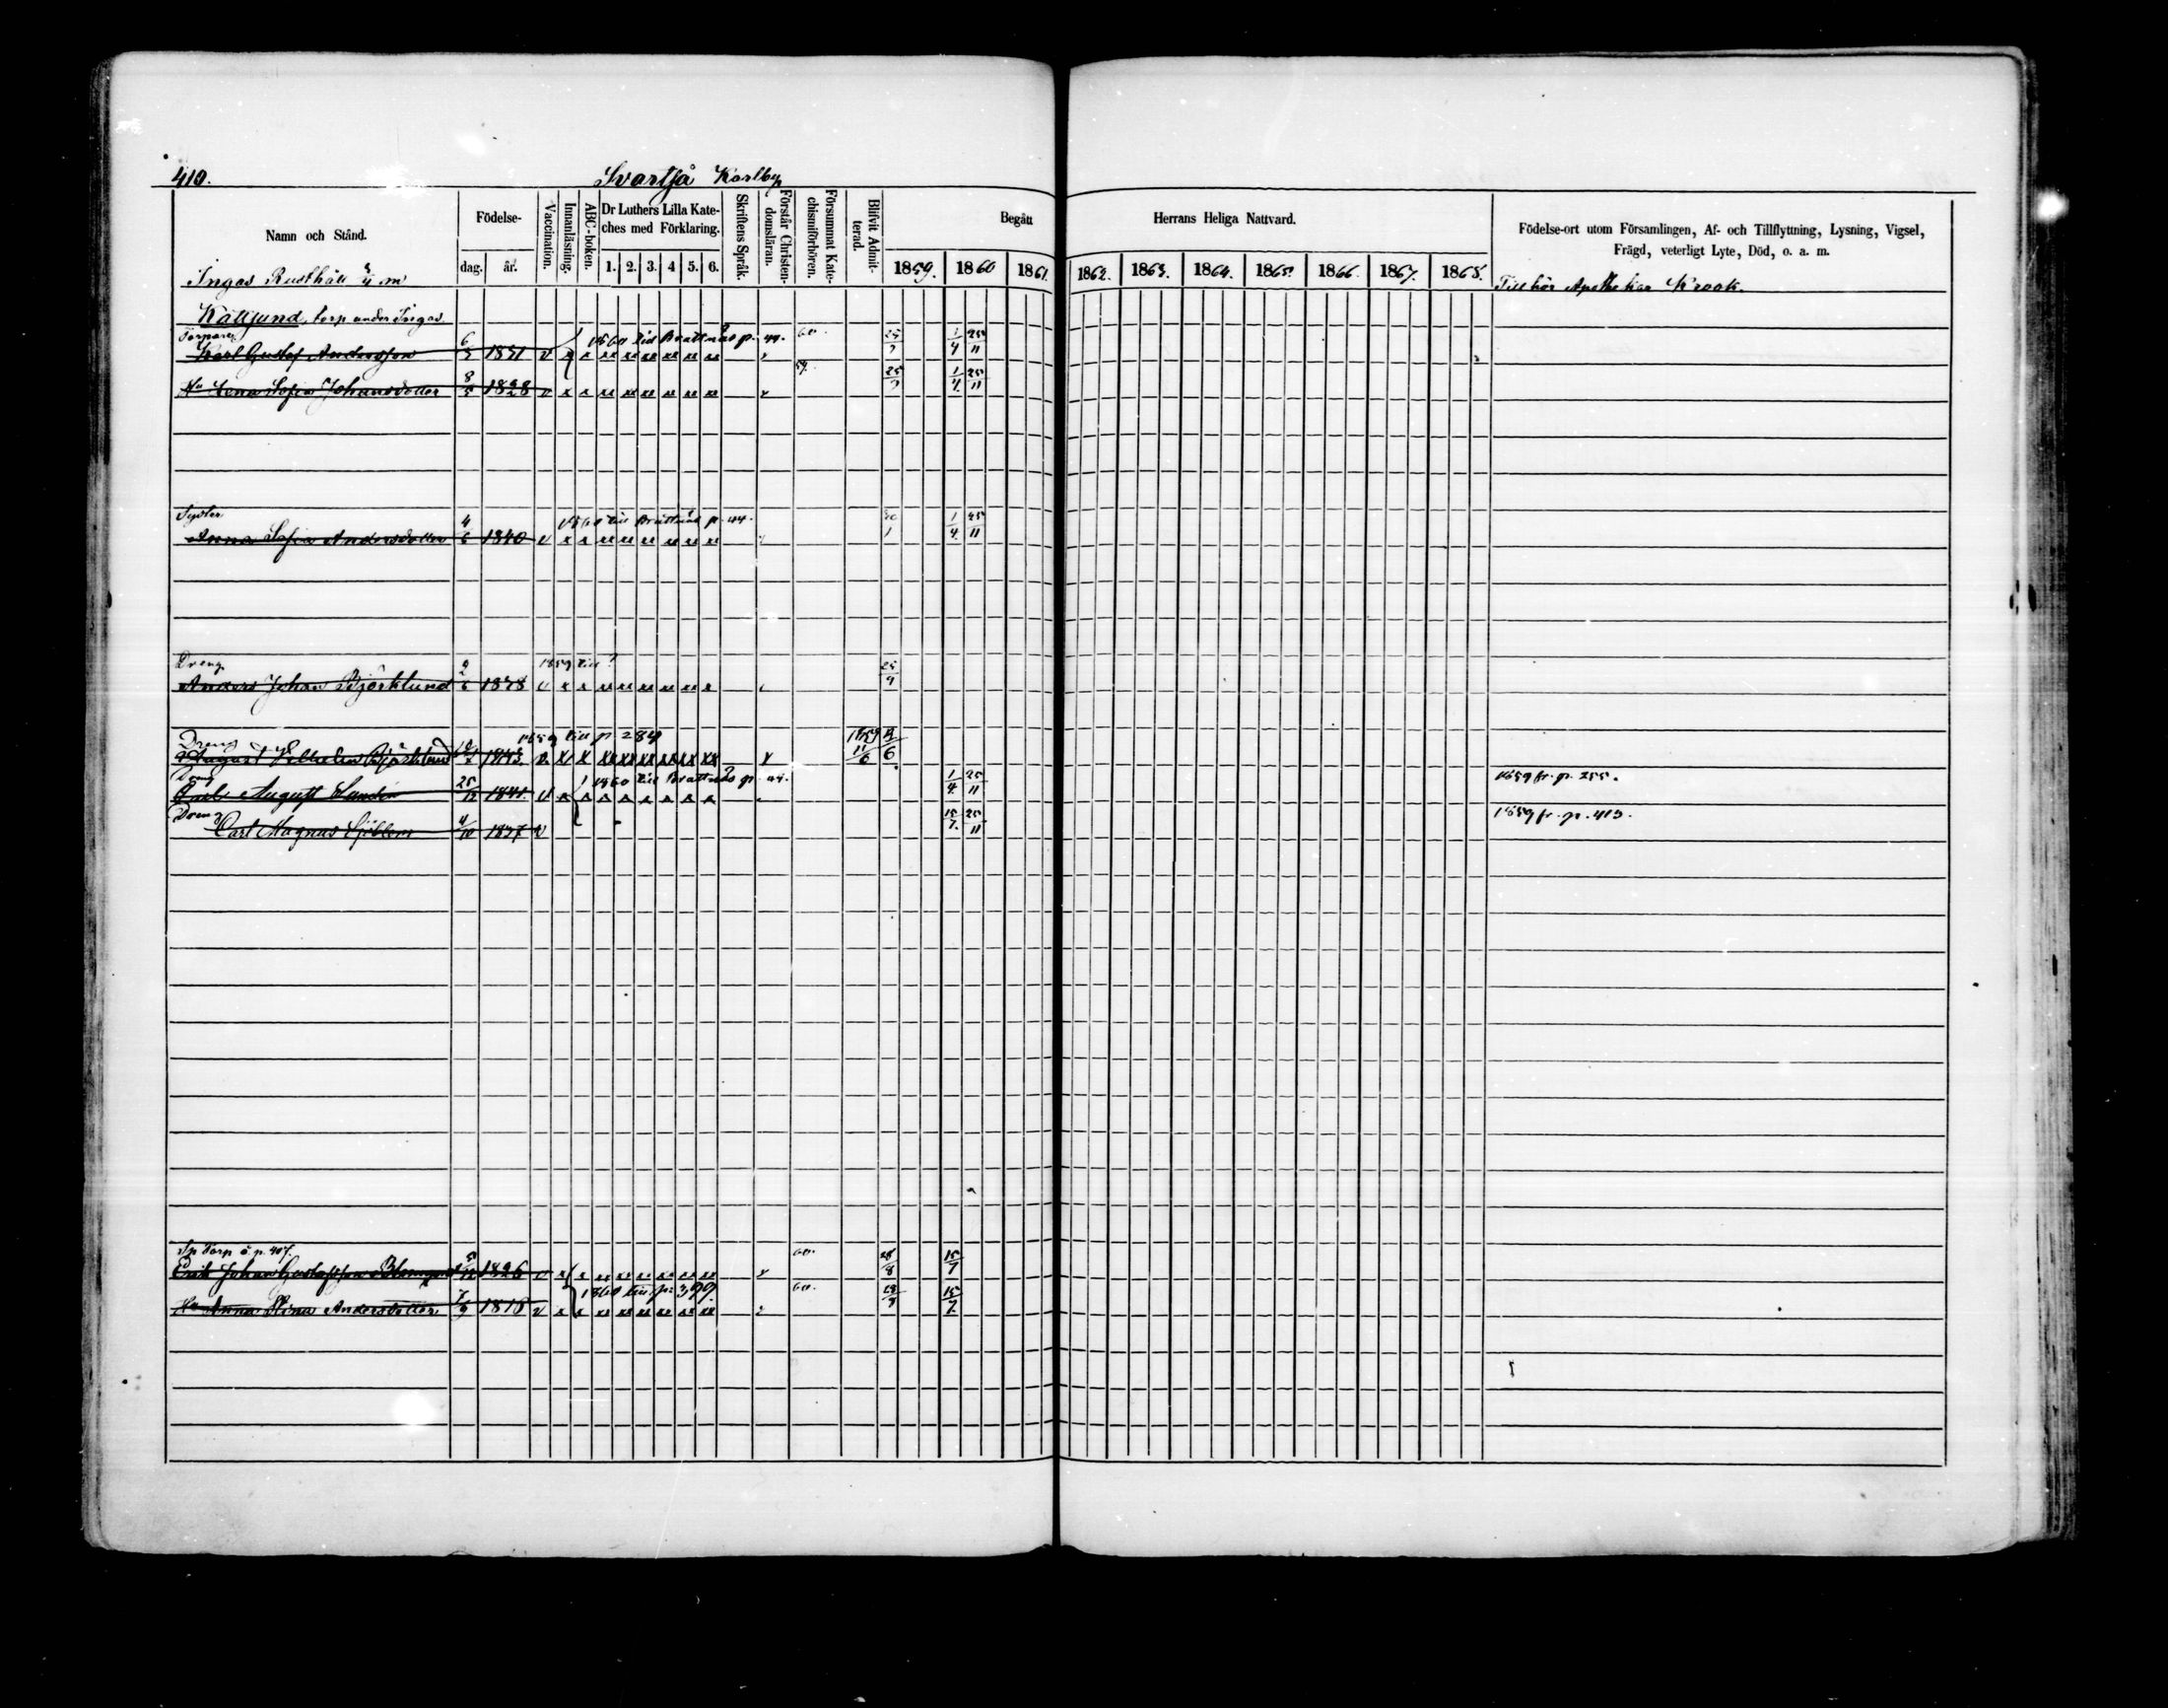 410. Svartså Karlby
Namn och Stånd.
Födelse-
dag. år.
Vaccination.
Innanläsning.
ABC-boken.
Dr Luthers Lilla Kate-
ches med Förklaring.
1. 2. 3. 4 5. 6.
Skriftens Språk.
Förstår Christen-
domsläran.
Försummat Kate-
chismiförhören.
Blifvit Admit-
terad.
Begått Herrans Heliga Nattvard.
1859. 1860 1861. 1862. 1863. 1864. 1865. 1866. 1867. 1868.
Födelse-ort utom Församlingen, Af- och Tillflyttning, Lysning, Vigsel,
Frägd, veterligt Lyte, Död, o. a. m.
Ingas Rusthåll m
Tillhör Apothekar Krook.
Kättsund, torp under Ingas.
Torparen 1860 till Brattnäs p. 44. 60.
Karl Gustaf Andersson 1831 v x x 25 1/4 25/11
59.
Hu Lena Sofia Johansdotter 8/5 1828 v x x 25 1/4 25/11
Syster 1860 till Brattnäs p. 44.
Anna Sofia Andersdotter 4/6 1840 v x x 1/4 25/11
Dreng 1859 till ?
Anders Johan Björklund 1838 v x x 25/9
Dreng 1859 till p 284 1859
August Vilhelm Björklund 1843 v x x 11/6
Dreng 1860 till Brattnäs p. 44. 1859 fr. p. 255.
August Sundin 25/12 1841 v x 1/4 25/11
Dreng 1859 fr. p. 413.
Carl Magnus Sjöblom 4/10 1837 v 15/7. 25/11
Torp å p. 407. 60.
Erik Johan Gustafsson Blomqvist 1826 v x 28/8 15/7
1860 till p: 399. 60.
Hu Anna Stina Andersdotter 7/9 1818 v x x 15/7.